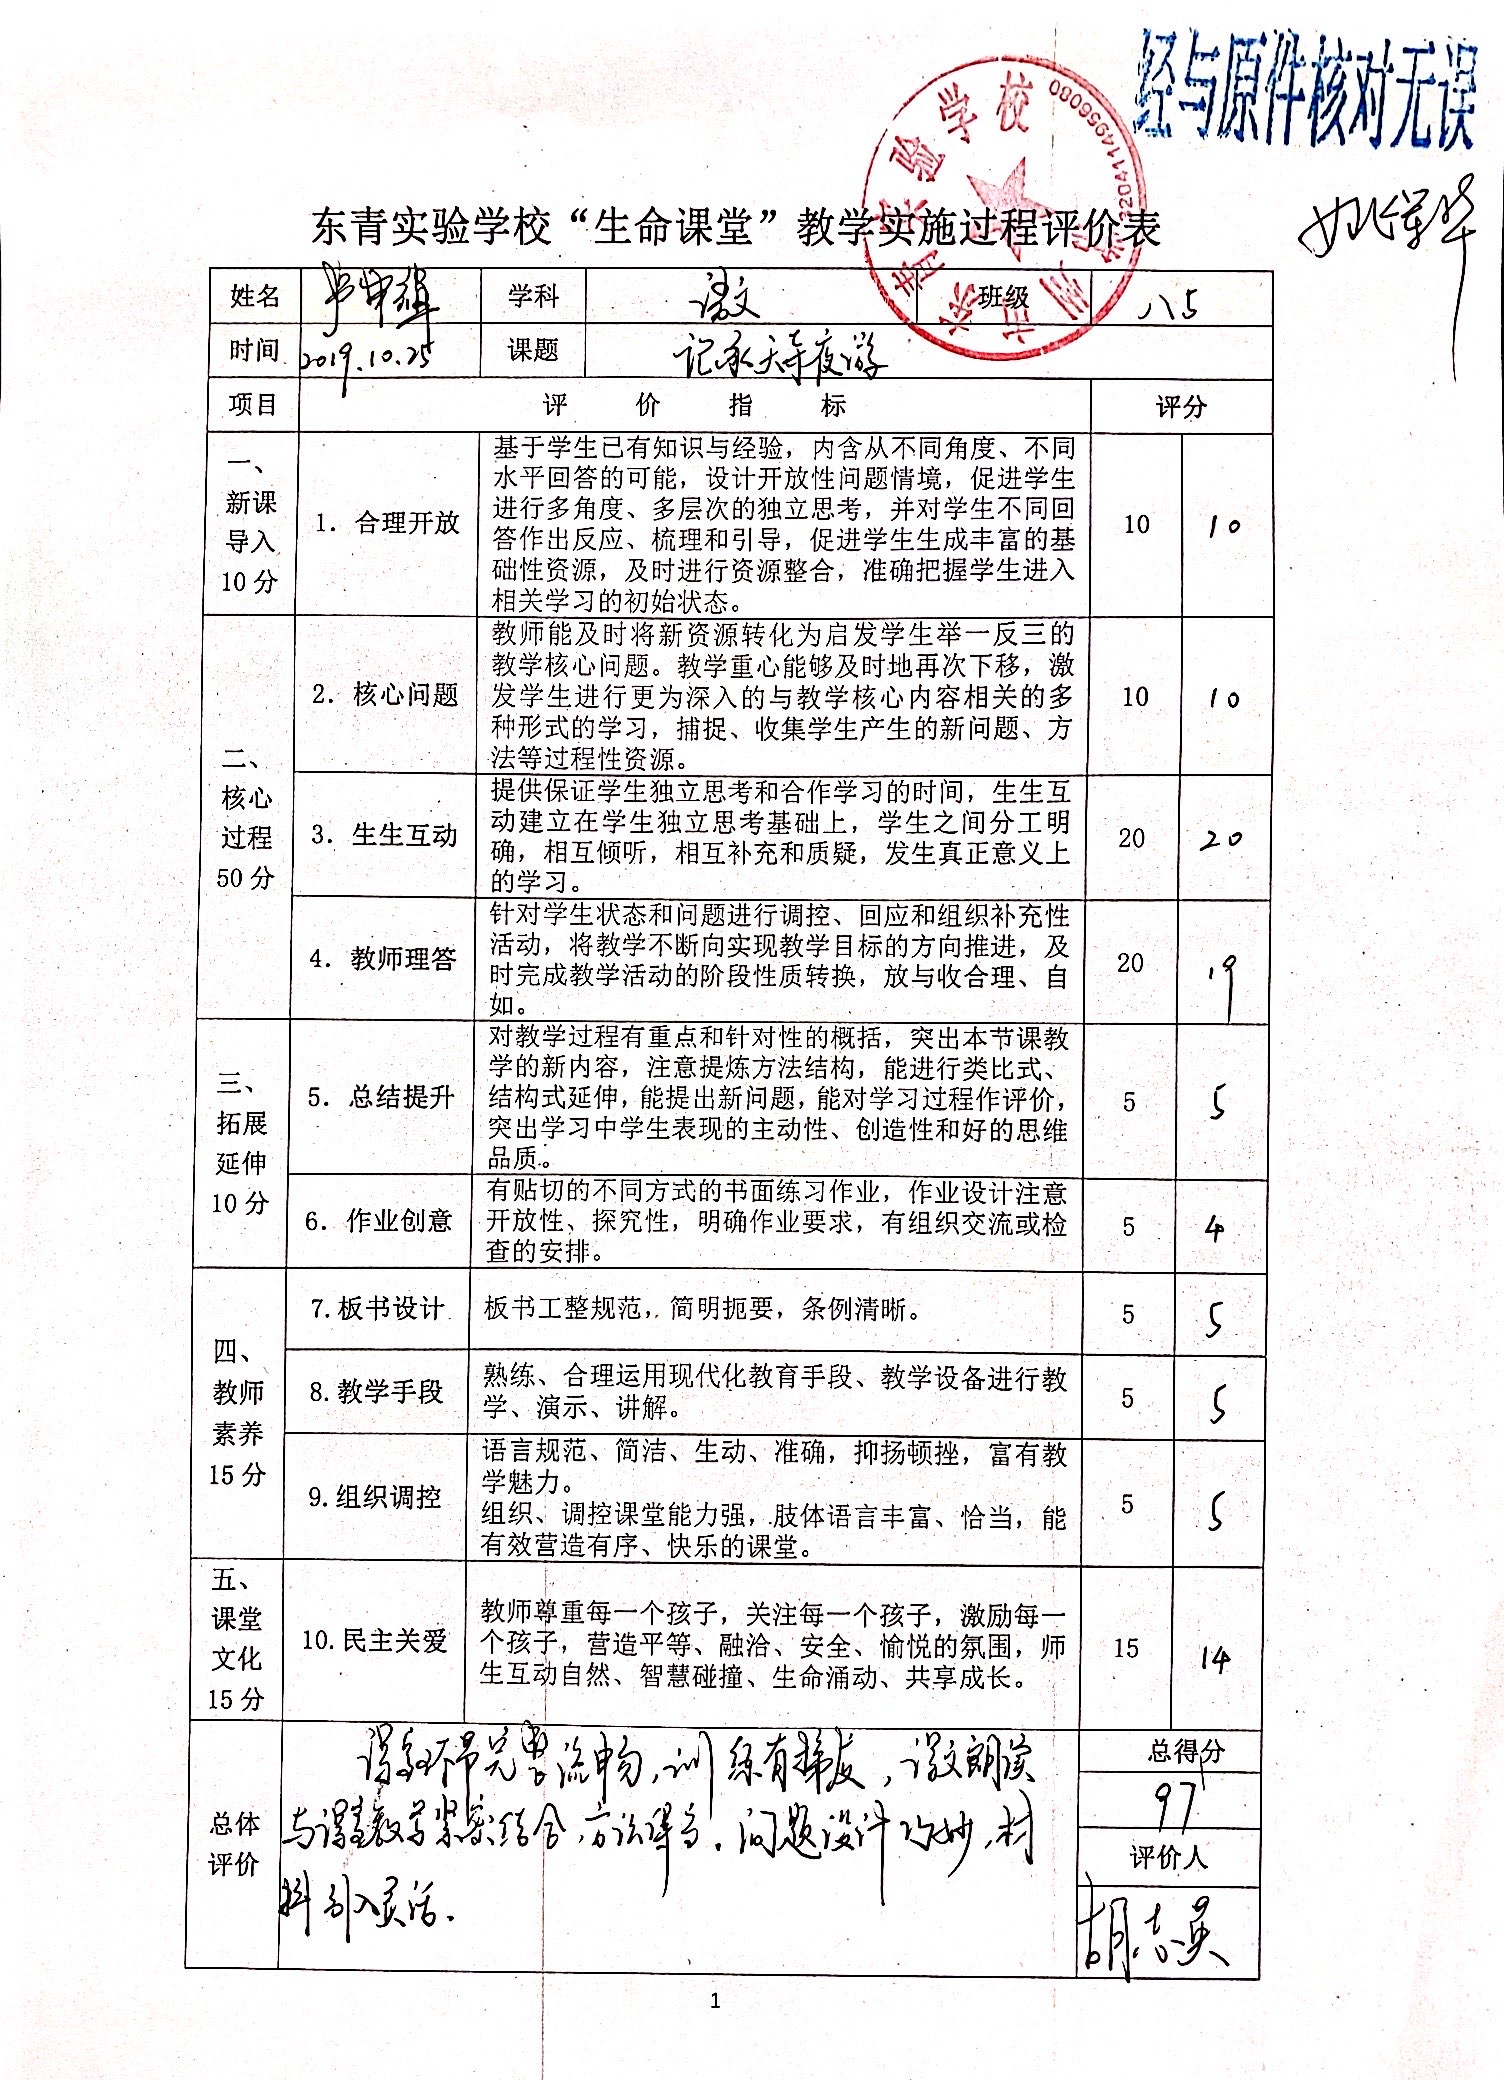 经与原件核对无误
东青实验学校
3204114956080
东青实验学校“生命课堂”教学实施过程评价表
姓名 学科 语文 班级 八5
时间 2019.10.25 课题 记承天寺夜游
项目 评 价 指 标 评分
一、
新课
导入
10分
1. 合理开放
基于学生已有知识与经验，内含从不同角度、不同
水平回答的可能，设计开放性问题情境，促进学生
进行多角度、多层次的独立思考，并对学生不同回
答作出反应、梳理和引导，促进学生生成丰富的基
础性资源，及时进行资源整合，准确把握学生进入
相关学习的初始状态。
10 10
二、
核心
过程
50分
2. 核心问题
教师能及时将新资源转化为启发学生举一反三的
教学核心问题。教学重心能够及时地再次下移，激
发学生进行更为深入的与教学核心内容相关的多
种形式的学习，捕捉、收集学生产生的新问题、方
法等过程性资源。
10 10
3. 生生互动
提供保证学生独立思考和合作学习的时间，生生互
动建立在学生独立思考基础上，学生之间分工明
确，相互倾听，相互补充和质疑，发生真正意义上
的学习。
20 20
4. 教师理答
针对学生状态和问题进行调控、回应和组织补充性
活动，将教学不断向实现教学目标的方向推进，及
时完成教学活动的阶段性质转换，放与收合理、自
如。
20 19
三、
拓展
延伸
10分
5. 总结提升
对教学过程有重点和针对性的概括，突出本节课教
学的新内容，注意提炼方法结构，能进行类比式、
结构式延伸，能提出新问题，能对学习过程作评价，
突出学习中学生表现的主动性、创造性和好的思维
品质。
5 5
6. 作业创意
有贴切的不同方式的书面练习作业，作业设计注意
开放性、探究性，明确作业要求，有组织交流或检
查的安排。
5 4
四、
教师
素养
15分
7.板书设计
板书工整规范，简明扼要，条例清晰。
5 5
8.教学手段
熟练、合理运用现代化教育手段、教学设备进行教
学、演示、讲解。
5 5
9.组织调控
语言规范、简洁、生动、准确，抑扬顿挫，富有教
学魅力。
组织、调控课堂能力强，肢体语言丰富、恰当，能
有效营造有序、快乐的课堂。
5 5
五、
课堂
文化
15分
10.民主关爱
教师尊重每一个孩子，关注每一个孩子，激励每一
个孩子，营造平等、融洽、安全、愉悦的氛围，师
生互动自然、智慧碰撞、生命涌动、共享成长。
15 14
总体
评价
课堂环节完整流畅，训练有梯度，课文朗读
与课堂教学紧密结合，方法得当。问题设计巧妙，材
料引入灵活.
总得分
97
评价人
胡志英
1